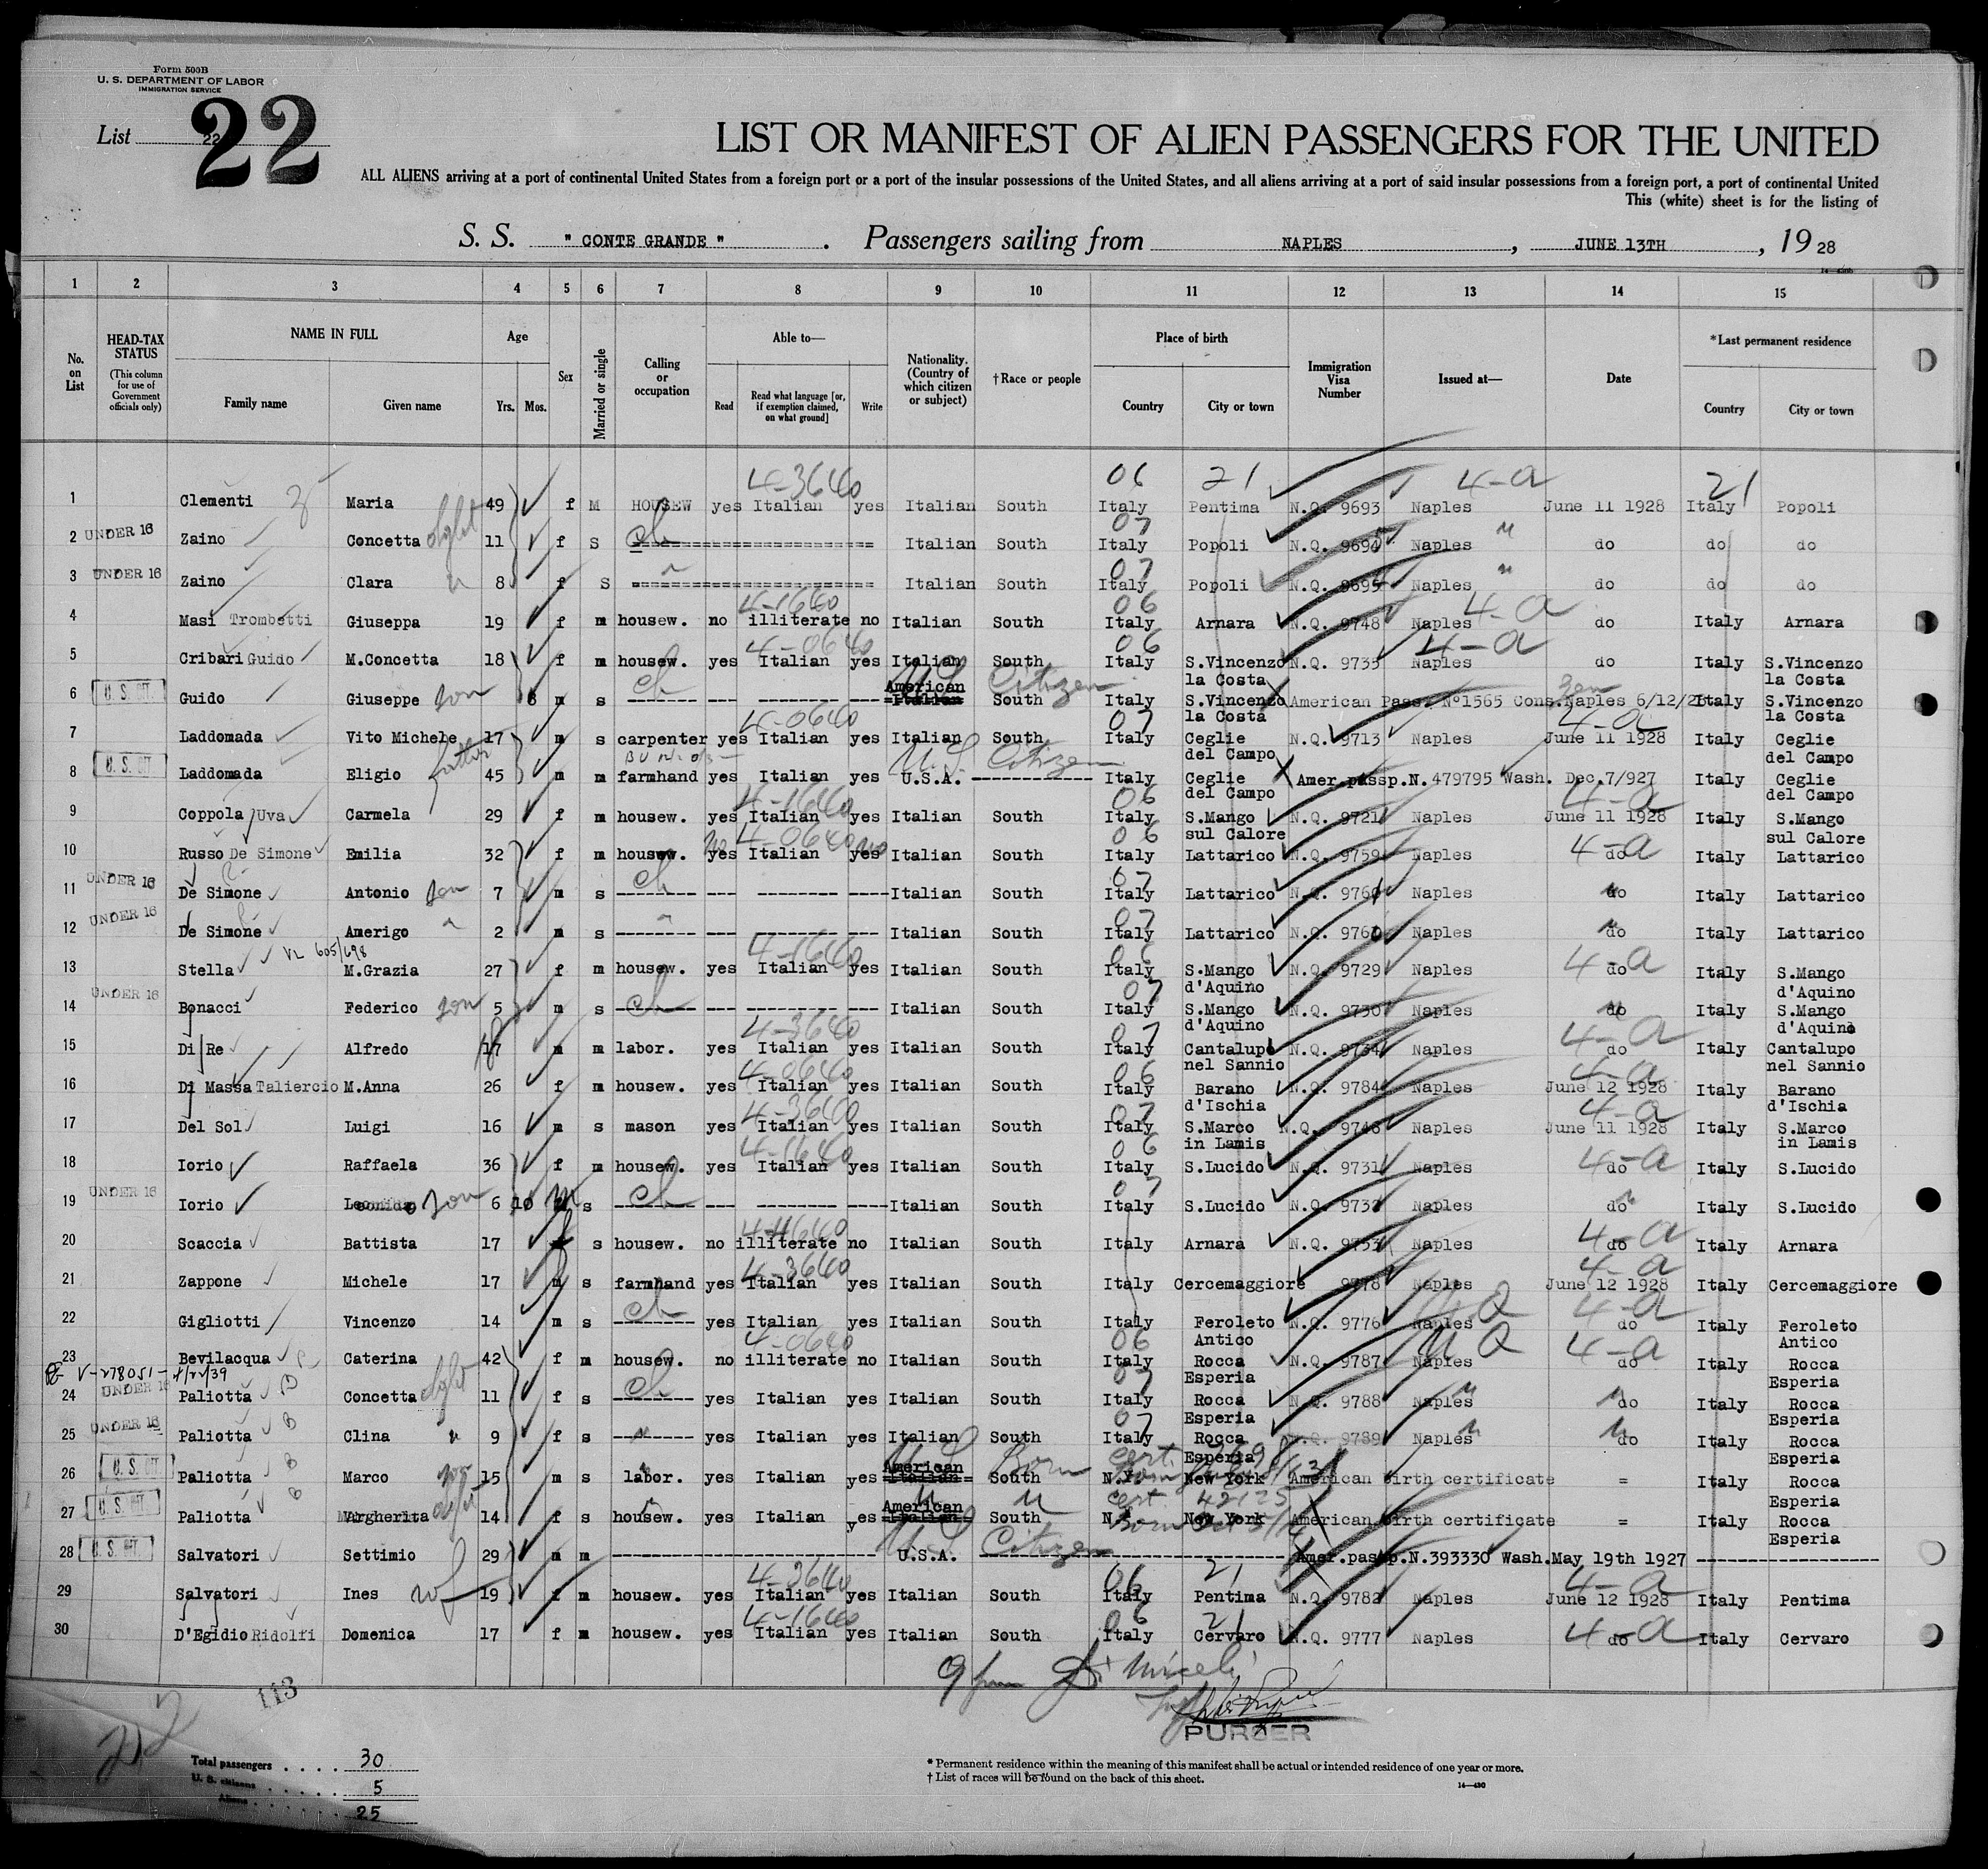 Form 500B
U. S. DEPARTMENT OF LABOR
IMMIGRATION SERVICE
List 22 22
LIST OR MANIFEST OF ALIEN PASSENGERS FOR THE UNITED
ALL ALIENS arriving at a port of continental United States from a foreign port or a port of the insular possessions of the United States, and all aliens arriving at a port of said insular possessions from a foreign port, a port of continental United
This (white) sheet is for the listing of
S. S. " CONTE GRANDE " . Passengers sailing from NAPLES , JUNE 13TH , 19 28
1 2 3 4 5 6 7 8 9 10 11 12 13 14 15
No. on List HEAD-TAX STATUS (This column for use of Government officials only) NAME IN FULL Family name Given name Age Yrs. Mos. Sex Married or single Calling or occupation Able to— Read Read what language [or, if exemption claimed, on what ground] Write Nationality. (Country of which citizen or subject) †Race or people Place of birth Country City or town Immigration Visa Number Issued at— Date *Last permanent residence Country City or town
4-3640 06 21 4-a 21
1 Clementi Maria 49 f M HOUSEW yes Italian yes Italian South Italy Pentima N.Q. 9693 Naples June 11 1928 Italy Popoli
07
2 UNDER 16 Zaino Concetta 11 f S ch Italian South Italy Popoli N.Q. 9694 Naples do do do
07
3 UNDER 16 Zaino Clara 8 f S Italian South Italy Popoli N.Q. 9695 Naples do do do
4-1640 06 4-a
4 Masi Trombetti Giuseppa 19 f m housew. no illiterate no Italian South Italy Arnara N.Q. 9748 Naples do Italy Arnara
4-0640 06 4-a
5 Cribari Guido M.Concetta 18 f m housew. yes Italian yes Italian South Italy S.Vincenzo la Costa N.Q. 9735 Naples do Italy S.Vincenzo la Costa
6 U. S. CIT. Guido Giuseppe son 8 m s ch American Italian US Citizen South Italy S.Vincenzo la Costa American Pass. Nº1565 Cons.Naples 6/12/28 Italy S.Vincenzo la Costa
4-0640 07 4-a
7 Laddomada Vito Michele 17 m s carpenter yes Italian yes Italian South Italy Ceglie del Campo N.Q. 9713 Naples June 11 1928 Italy Ceglie del Campo
8 U. S. CIT. Laddomada Eligio father 45 m m farmhand yes Italian yes U.S.A. US Citizen Italy Ceglie del Campo Amer.passp.N.479795 Wash. Dec.7/927 Italy Ceglie del Campo
4-1640 06 4-a
9 Coppola Uva Carmela 29 f m housew. yes Italian yes Italian South Italy S.Mango sul Calore N.Q. 9721 Naples June 11 1928 Italy S.Mango sul Calore
no 4-0640 no 06 4-a
10 Russo De Simone Emilia 32 f m housew. yes Italian yes Italian South Italy Lattarico N.Q. 9759 Naples do Italy Lattarico
07
11 UNDER 16 De Simone Antonio son 7 m s ch Italian South Italy Lattarico N.Q. 9760 Naples do Italy Lattarico
07
12 UNDER 16 De Simone Amerigo 2 m s Italian South Italy Lattarico N.Q. 9761 Naples do Italy Lattarico
605/698 4-1640 06 4-a
13 Stella M.Grazia 27 f m housew. yes Italian yes Italian South Italy S.Mango d'Aquino N.Q. 9729 Naples do Italy S.Mango d'Aquino
07
14 UNDER 16 Bonacci Federico son 5 m s ch Italian South Italy S.Mango d'Aquino N.Q. 9730 Naples do Italy S.Mango d'Aquino
4-3640 07 4-a
15 Di Re Alfredo 17 m m labor. yes Italian yes Italian South Italy Cantalupo nel Sannio N.Q. 9734 Naples do Italy Cantalupo nel Sannio
4-0640 06 4-a
16 Di Massa Taliercio M.Anna 26 f m housew. yes Italian yes Italian South Italy Barano d'Ischia N.Q. 9784 Naples June 12 1928 Italy Barano d'Ischia
4-3640 07 4-a
17 Del Sol Luigi 16 m s mason yes Italian yes Italian South Italy S.Marco in Lamis N.Q. 9746 Naples June 11 1928 Italy S.Marco in Lamis
4-1640 06 4-a
18 Iorio Raffaela 36 f m housew. yes Italian yes Italian South Italy S.Lucido N.Q. 9731 Naples do Italy S.Lucido
07
19 UNDER 16 Iorio son 6 10 m s ch Italian South Italy S.Lucido N.Q. 9732 Naples do Italy S.Lucido
4-4640 4-a
20 Scaccia Battista 17 f s housew. no illiterate no Italian South Italy Arnara N.Q. 9753 Naples do Italy Arnara
4-3640 4-a
21 Zappone Michele 17 m s farmhand yes Italian yes Italian South Italy Cercemaggiore 9778 Naples June 12 1928 Italy Cercemaggiore
4-a
22 Gigliotti Vincenzo 14 m s ch yes Italian yes Italian South Italy Feroleto Antico N.Q. 9776 Naples do Italy Feroleto Antico
4-0640 06 N Q 4-a
23 Bevilacqua Caterina 42 f m housew. no illiterate no Italian South Italy Rocca Esperia N.Q. 9787 Naples do Italy Rocca Esperia
V-278051-
24 UNDER 16 Paliotta Concetta 11 f s ch yes Italian yes Italian South 07 Italy Rocca Esperia N.Q. 9788 Naples do Italy Rocca Esperia
25 UNDER 16 Paliotta Clina 9 f s yes Italian yes Italian South 07 Italy Rocca Esperia N.Q. 9789 Naples do Italy Rocca Esperia
26 U. S. CIT. Paliotta Marco son 15 m s labor. yes Italian yes American Italian US Born South N.Y. New York cert. American birth certificate = Italy Rocca Esperia
27 U. S. CIT. Paliotta Margherita 14 f s housew. yes Italian yes American Italian South N.Y. New York cert. 42125 American birth certificate = Italy Rocca Esperia
28 U. S. CIT. Salvatori Settimio 29 m m U.S.A. US Citizen Amer.passp.N.393330 Wash.May 19th 1927
4-3640 06 21 4-a
29 Salvatori Ines wf 19 f m housew. yes Italian yes Italian South Italy Pentima N.Q. 9782 Naples June 12 1928 Italy Pentima
4-1640 06 21 4-a
30 D'Egidio Ridolfi Domenica 17 f m housew. yes Italian yes Italian South Italy Cervaro N.Q. 9777 Naples do Italy Cervaro
113
PURSER
Total passengers . . . . 30
U. S. citizens . . . . . 5
Aliens . . . . . . 25
* Permanent residence within the meaning of this manifest shall be actual or intended residence of one year or more.
† List of races will be found on the back of this sheet.